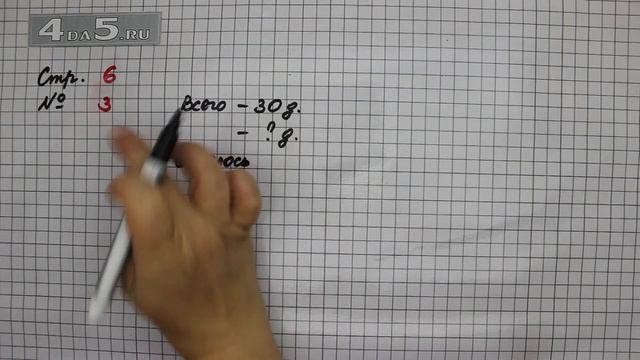 4DA5.RU
Стр. 6
№ 3
Всего – 30 д.
– ? д.